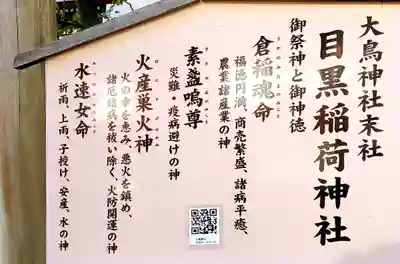 大鳥神社末社
目黒稲荷神社
御祭神と御神徳
倉稲魂命
福徳円満、商売繁盛、諸病平癒、
農業諸産業の神
素盞嗚尊
災難・疫病避けの神
火産巣火神
火の幸を恵み、悪火を鎮め、
諸厄諸病を祓い除く、火防開運の神
水速女命
祈雨、止雨、子授け、安産、水の神